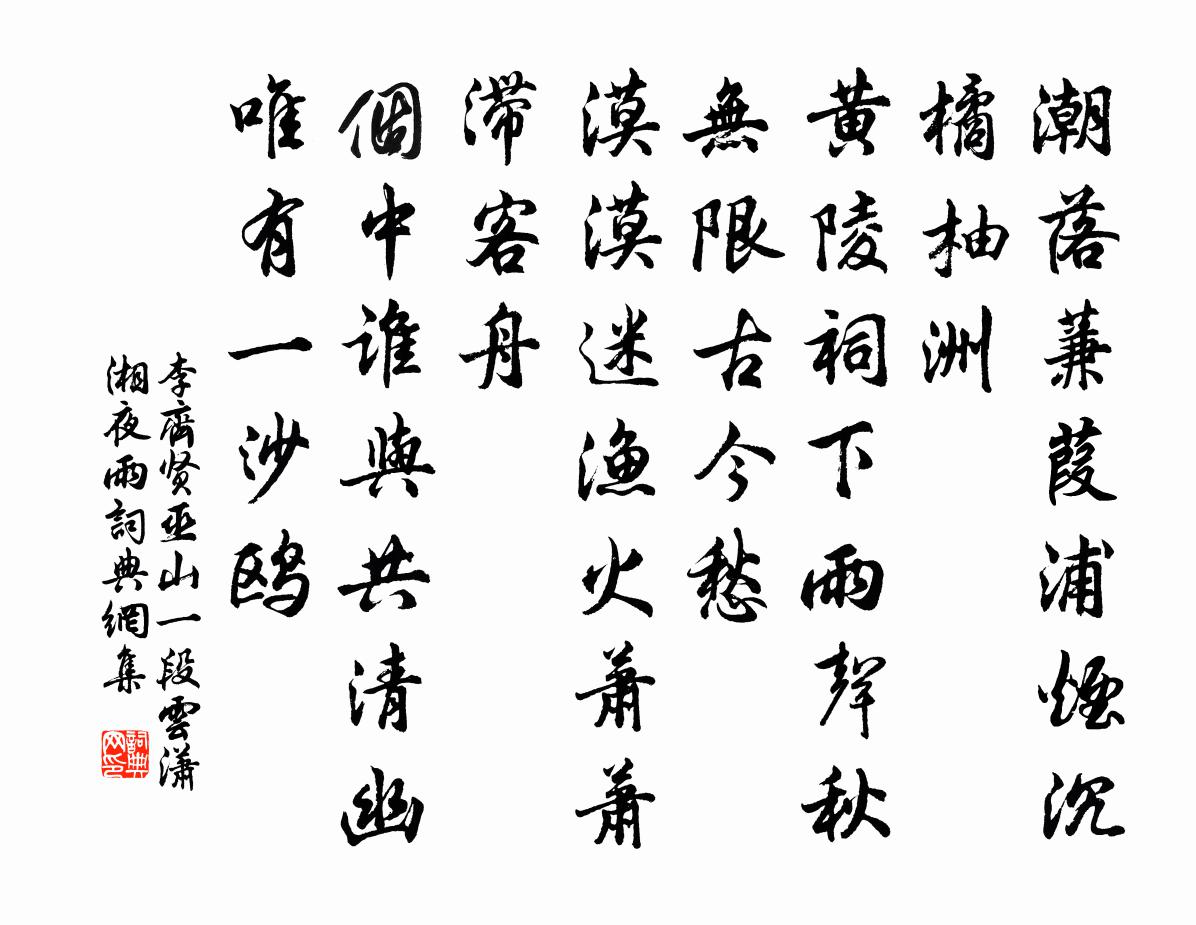 潮落蒹葭浦煙沉
橘柚洲
黄陵祠下雨聲秋
無限古今愁
漠漠迷漁火蕭蕭
滞客舟
個中誰與共清幽
唯有一沙鸥
李齊贤巫山一段雲潇
湘夜雨詞典網集
詞典
网印